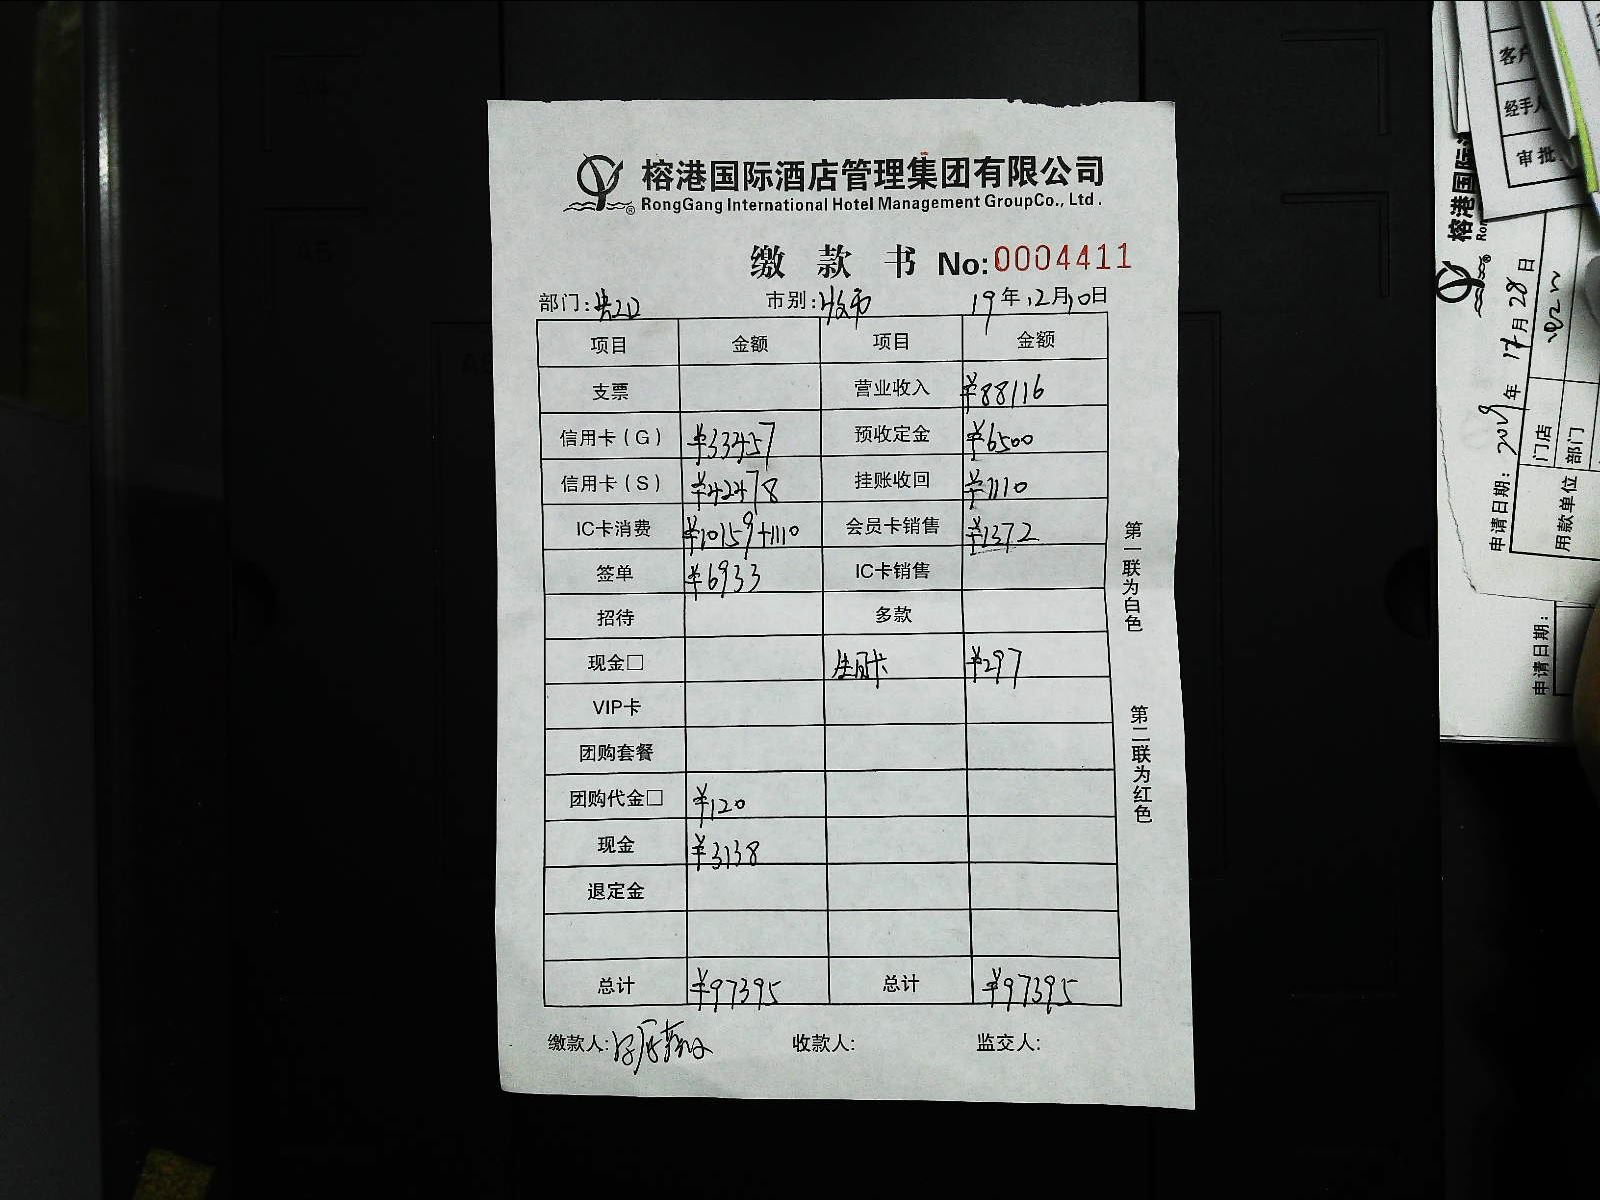 榕港国际酒店管理集团有限公司
RongGang International Hotel Management GroupCo., Ltd.
缴款书 No:0004411
部门: 市别:收市 19年12月10日
项目 金额 项目 金额
支票 营业收入 ¥88116
信用卡(G) ¥33457 预收定金 ¥6500
信用卡(S) ¥42478 挂账收回 ¥1110
IC卡消费 ¥10159+1110 会员卡销售 ¥1372
签单 ¥6933 IC卡销售
招待 多款
现金□ ¥297
VIP卡
团购套餐
团购代金□ ¥120
现金 ¥3138
退定金
总计 ¥97395 总计 ¥97395
缴款人: 收款人: 监交人:
第一联为白色
第二联为红色
客户
经手人
审批
榕港国际
申请日期: 2019年12月28日
用款单位
门店
部门
申请日期: